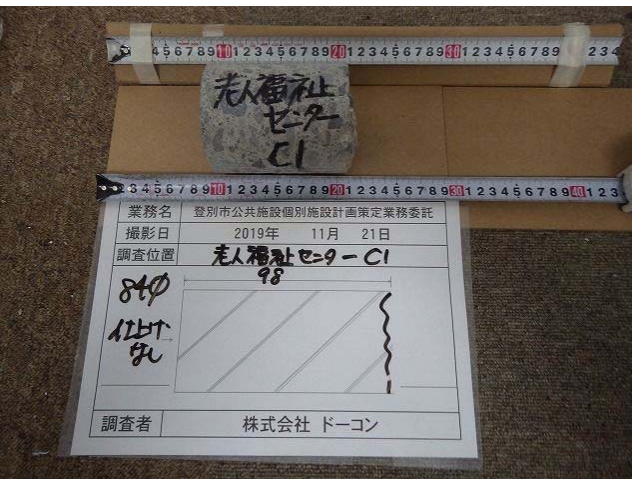 1 2 3 4 5 6 7 8 9 10 1 2 3 4 5 6 7 8 9 20 1 2 3 4 5 6 7 8 9 30 1 2 3 4 5 6 7 8 9 1 2 3 4
老人福祉
センター
C1
2 3 4 5 6 7 8 9 10 1 2 3 4 5 6 7 8 9 20 1 2 3 4 5 6 7 8 9 30 1 2 3 4 5 6 7 8 9 40 1 2 3
業務名 登別市公共施設個別施設計画策定業務委託
撮影日 2019年 11月 21日
調査位置 老人福祉センターC1
98
84φ
仕上げ
なし
調査者 株式会社 ドーコン